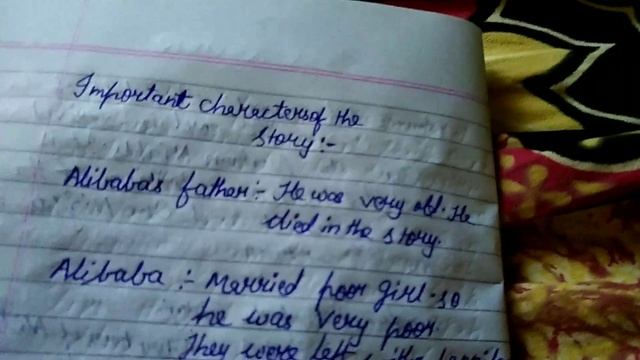 Important characters of the
story:-
Alibaba's father:- He was very old. He
died in the story.
Alibaba :- Married poor girl. so
he was very poor
They were left